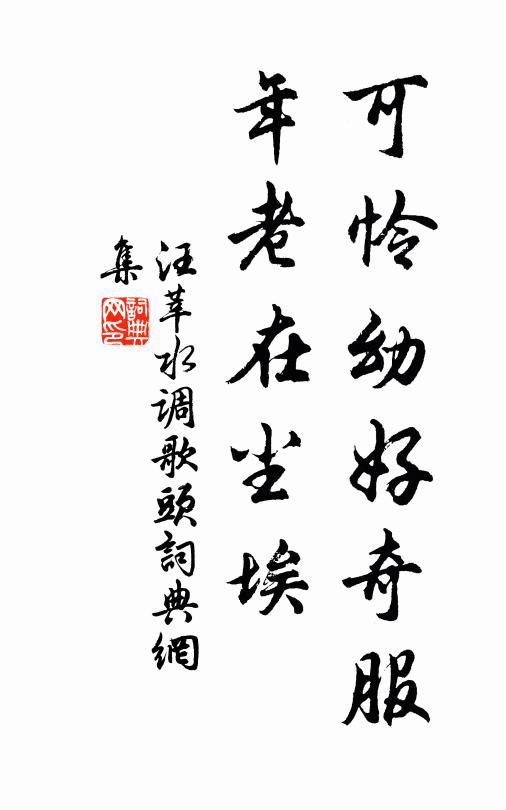 可怜幼好奇服
年老在尘埃
汪莘水调歌頭詞典網
集
詞典
网印